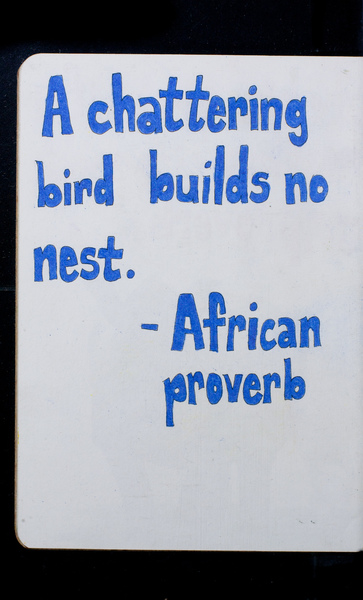 A chattering
bird builds no
nest.
- African
proverb